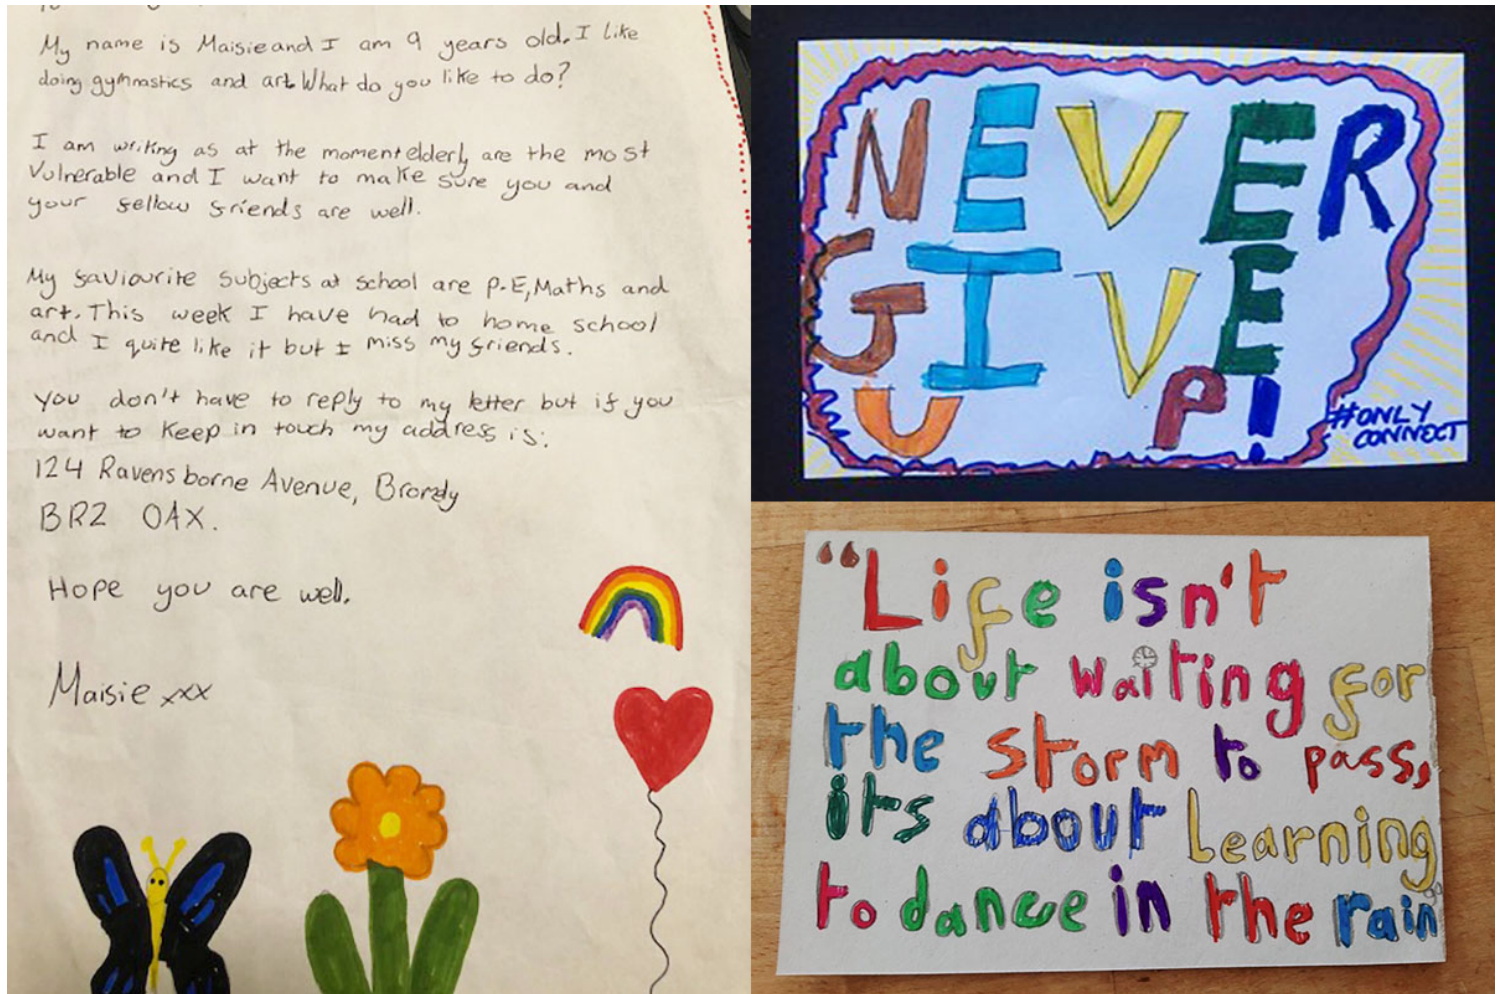 My name is Maisie and I am 9 years old. I like
doing gymnastics and art. What do you like to do?
I am writing as at the moment elderly are the most
Vulnerable and I want to make sure you and
your fellow friends are well.
My faviourite subjects at school are P.E, Maths and
art. This week I have had to home school
and I quite like it but I miss my friends.
You don't have to reply to my letter but if you
want to keep in touch my address is:
124 Ravensborne Avenue, Bromley
BR2 0AX.
Hope you are well.
Maisie xxx
NEVER
GIVE
UP!
#ONLY
CONNECT
"Life isn't
about waiting for
the storm to pass,
its about Learning
to dance in the rain"